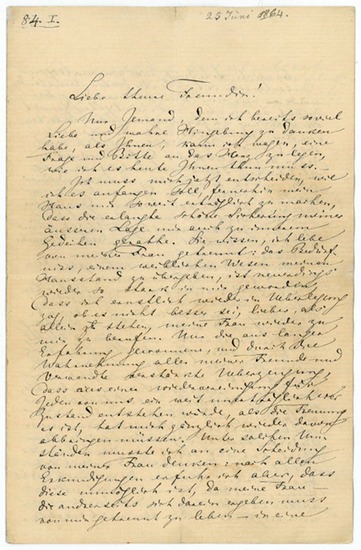 84. I.
25 Juni 1864.
Liebe theure Freundin!
Nur Jemand, dem ich bereits so viel
Liebe und wahre Hingebung zu danken
habe, als Ihnen, kann ich wagen, eine
Frage und Bitte an das Herz zu legen,
wie ich es heute Ihnen thun muss.
Es muss sich jetzt entscheiden, wie
ich es anfangen soll fernerhin mein
Haus mir so weit erträglich zu machen,
dass die erlangte schöne Sicherung meiner
äusseren Lage mir auch zu innerem
Gedeihen gerathe. Sie wissen, ich lebe
von meiner Frau getrennt: das Bedürf-
niss, einem weiblichen Wesen meinen
Hausstand zu übergeben, ist neuerdings
wieder so stark in mir geworden,
dass ich ernstlich wieder in Ueberlegung
zog, ob es nicht besser sei, lieber, als
allein zu stehen, meine Frau wieder zu
mir zu berufen. Nur die aus langer
Erfahrung gewonnene, und durch die
Wahrnehmung aller meiner Freunde und
Verwandte verstärkte Ueberzeugung,
dass aus einer Wiedervereinigung für
Jeden von uns ein weit unerträglicherer
Zustand entstehen würde, als die Trennung
es ist, hat mich gänzlich wieder davon
abbringen müssen. Unter solchen Um-
ständen musste ich an eine Scheidung
von meiner Frau denken: nach allen
Erkundigungen erfuhr ich aber, dass
diese unmöglich ist, da meine Frau –
die andrerseits sich darein ergeben muss
von mir getrennt zu leben – in eine